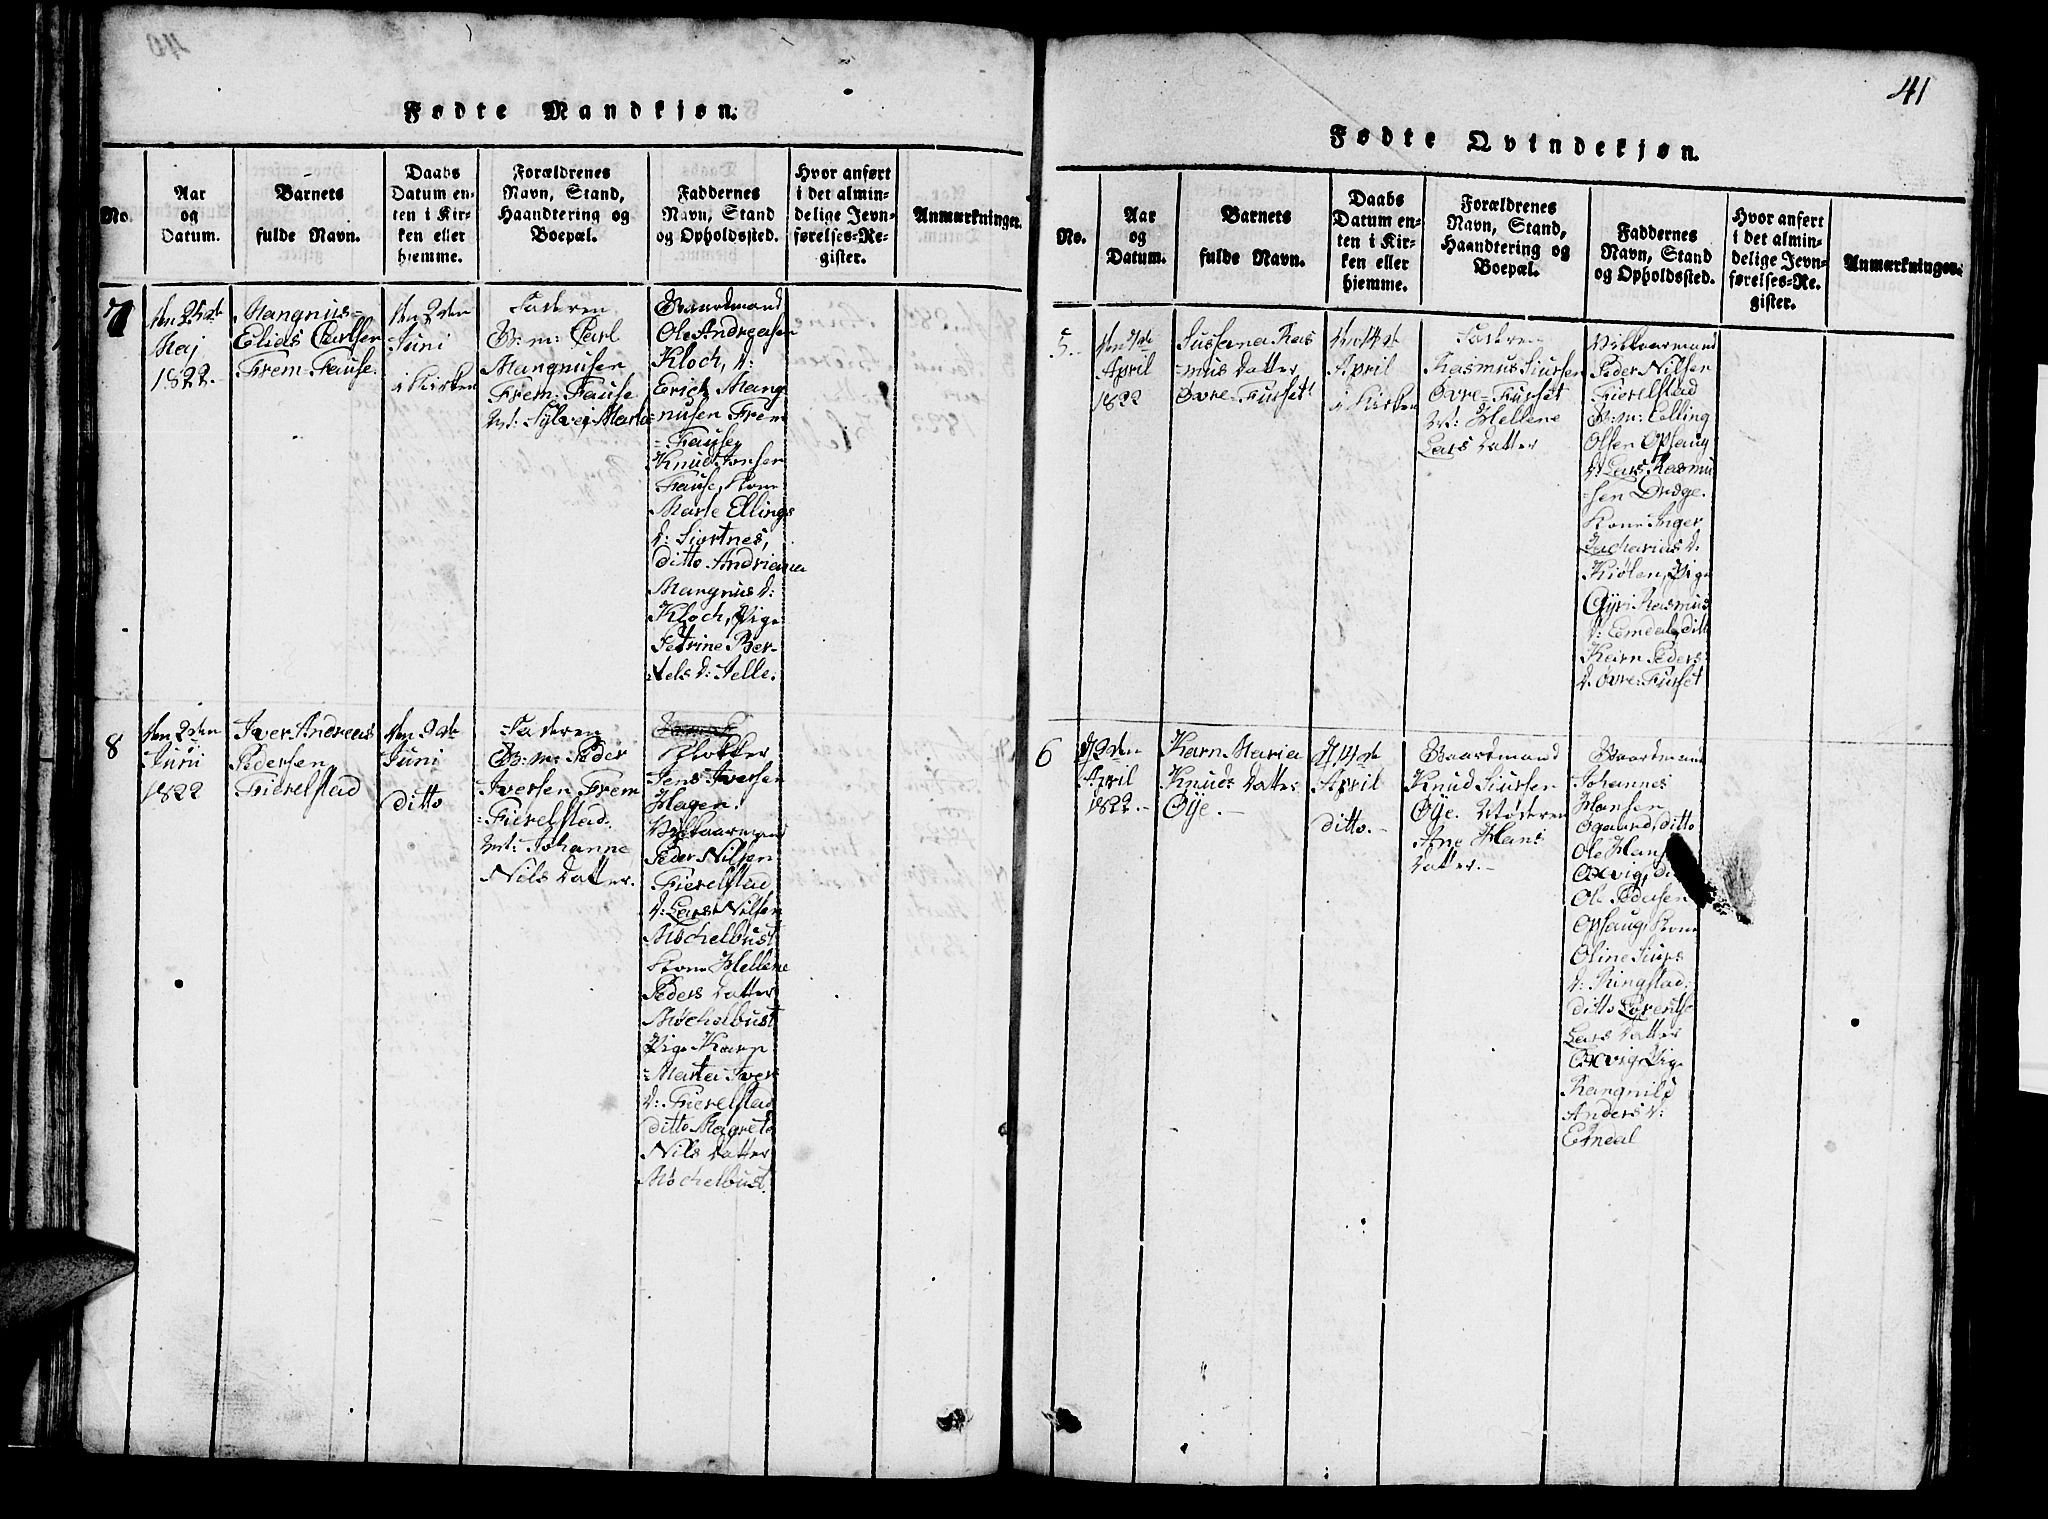 Fødte Mandkjøn.
No.
Aar
og
Datum.
Barnets
fulde Navn.
Daabs
Datum en-
ten i Kir-
ken eller
hjemme.
Forældrenes
Navn, Stand,
Haandtering og
Boepæl.
Faddernes
Navn, Stand
og Opholdssted.
Hvor anført
i det almin-
delige Jevn-
førelses-Re-
gister.
Anmærkninger.
7
Maj
1822.
Mangnus=
Elias Carlsen
Frem-Fause.
den 2den
Juni
i Kirken
Faderen
G: m: Carl
Mangnusen
Frem: Fause
M: Sylvej Marta
Gaardmand
Ole Andreasen
Kloch, d:
Erich Mang
=nusen Frem
=Fause,
Knud Jonsen
Fause, Kone
Marte Ellings
d: Siortnes,
ditto Andriana
Mangnus d:
Kloch, Pige
Petrine Ber-
tels d: Jelle.
8
den 2den
Juni
1822
Iver Andreas
Pedersen
Fierelstad
den 9de
Juni
ditto
Faderen
G: m: Peder
Iversen Frem
=Fierelstad.
M: Johanne
Nils Datter.
Klokker
Jens Iversen
Hagen.
Vilkaarmand
Peder Nilsen
Fierelstad
d: Lars Nilsen
Mochelbust
Kone Hellene
Peders Datter
Mochelbust
Pige Karn
Marta Iver
d: Fierelstad
ditto Magreta
Nils Datter
Mochelbust.
41
Fødte Qvindekjøn.
No.
Aar
og
Datum.
Barnets
fulde Navn.
Daabs
Datum en-
ten i Kir-
ken eller
hjemme.
Forældrenes
Navn, Stand,
Haandtering og
Boepæl.
Faddernes
Navn, Stand
og Opholdssted.
Hvor anført
i det almin-
delige Jevn-
førelses-Re-
gister.
Anmærkninger.
5.
April
1822
Susana Ras
=mus Datter
Øvre-Furset
den 14de
April
i Kirken
Faderen
Rasmus Siursen
Øvre-Furset
M: Hellene
Lars Datter
Vilkaarmand
Peder Nilsen
Fierelstad
G: m: Elling
Olsen Opsaug
d: Lars Rasmu
=sen Drage.
Kone Inger
Zacharias d.
Kiølen, Pige
Gyri Rasmus
d: Emdal, ditto
Keirn Peders
d. Øvre: Furset
6
d: 2den
April
1822.-
Karn Maria
Knuds Datter
Øije.-
d: 14de
April
ditto.-
Gaardmand
Knud Siursen
Øije. Moderen
Ane Hans
Datter.-
Gaardmand
Johannes
Hansen
Ogaard, ditto
Ole
Oxvig,
Ole Pedersen
Opsaug, Kone
Oline Siurs
d: Ringstad.
ditto Lorentse
Lars Datter
Oxvig, Pige
Rangnild
Anders d:
Emdal